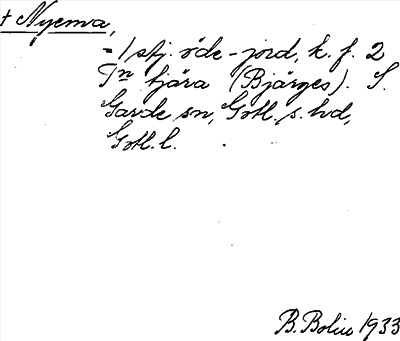 † Nyema,
= 1 stj. öde-jord, k. f. 2
Tn tjära (Bjärges). S.
Garde sn, Gotl. s. hd,
Gotl. l.
B. Bolin 1933